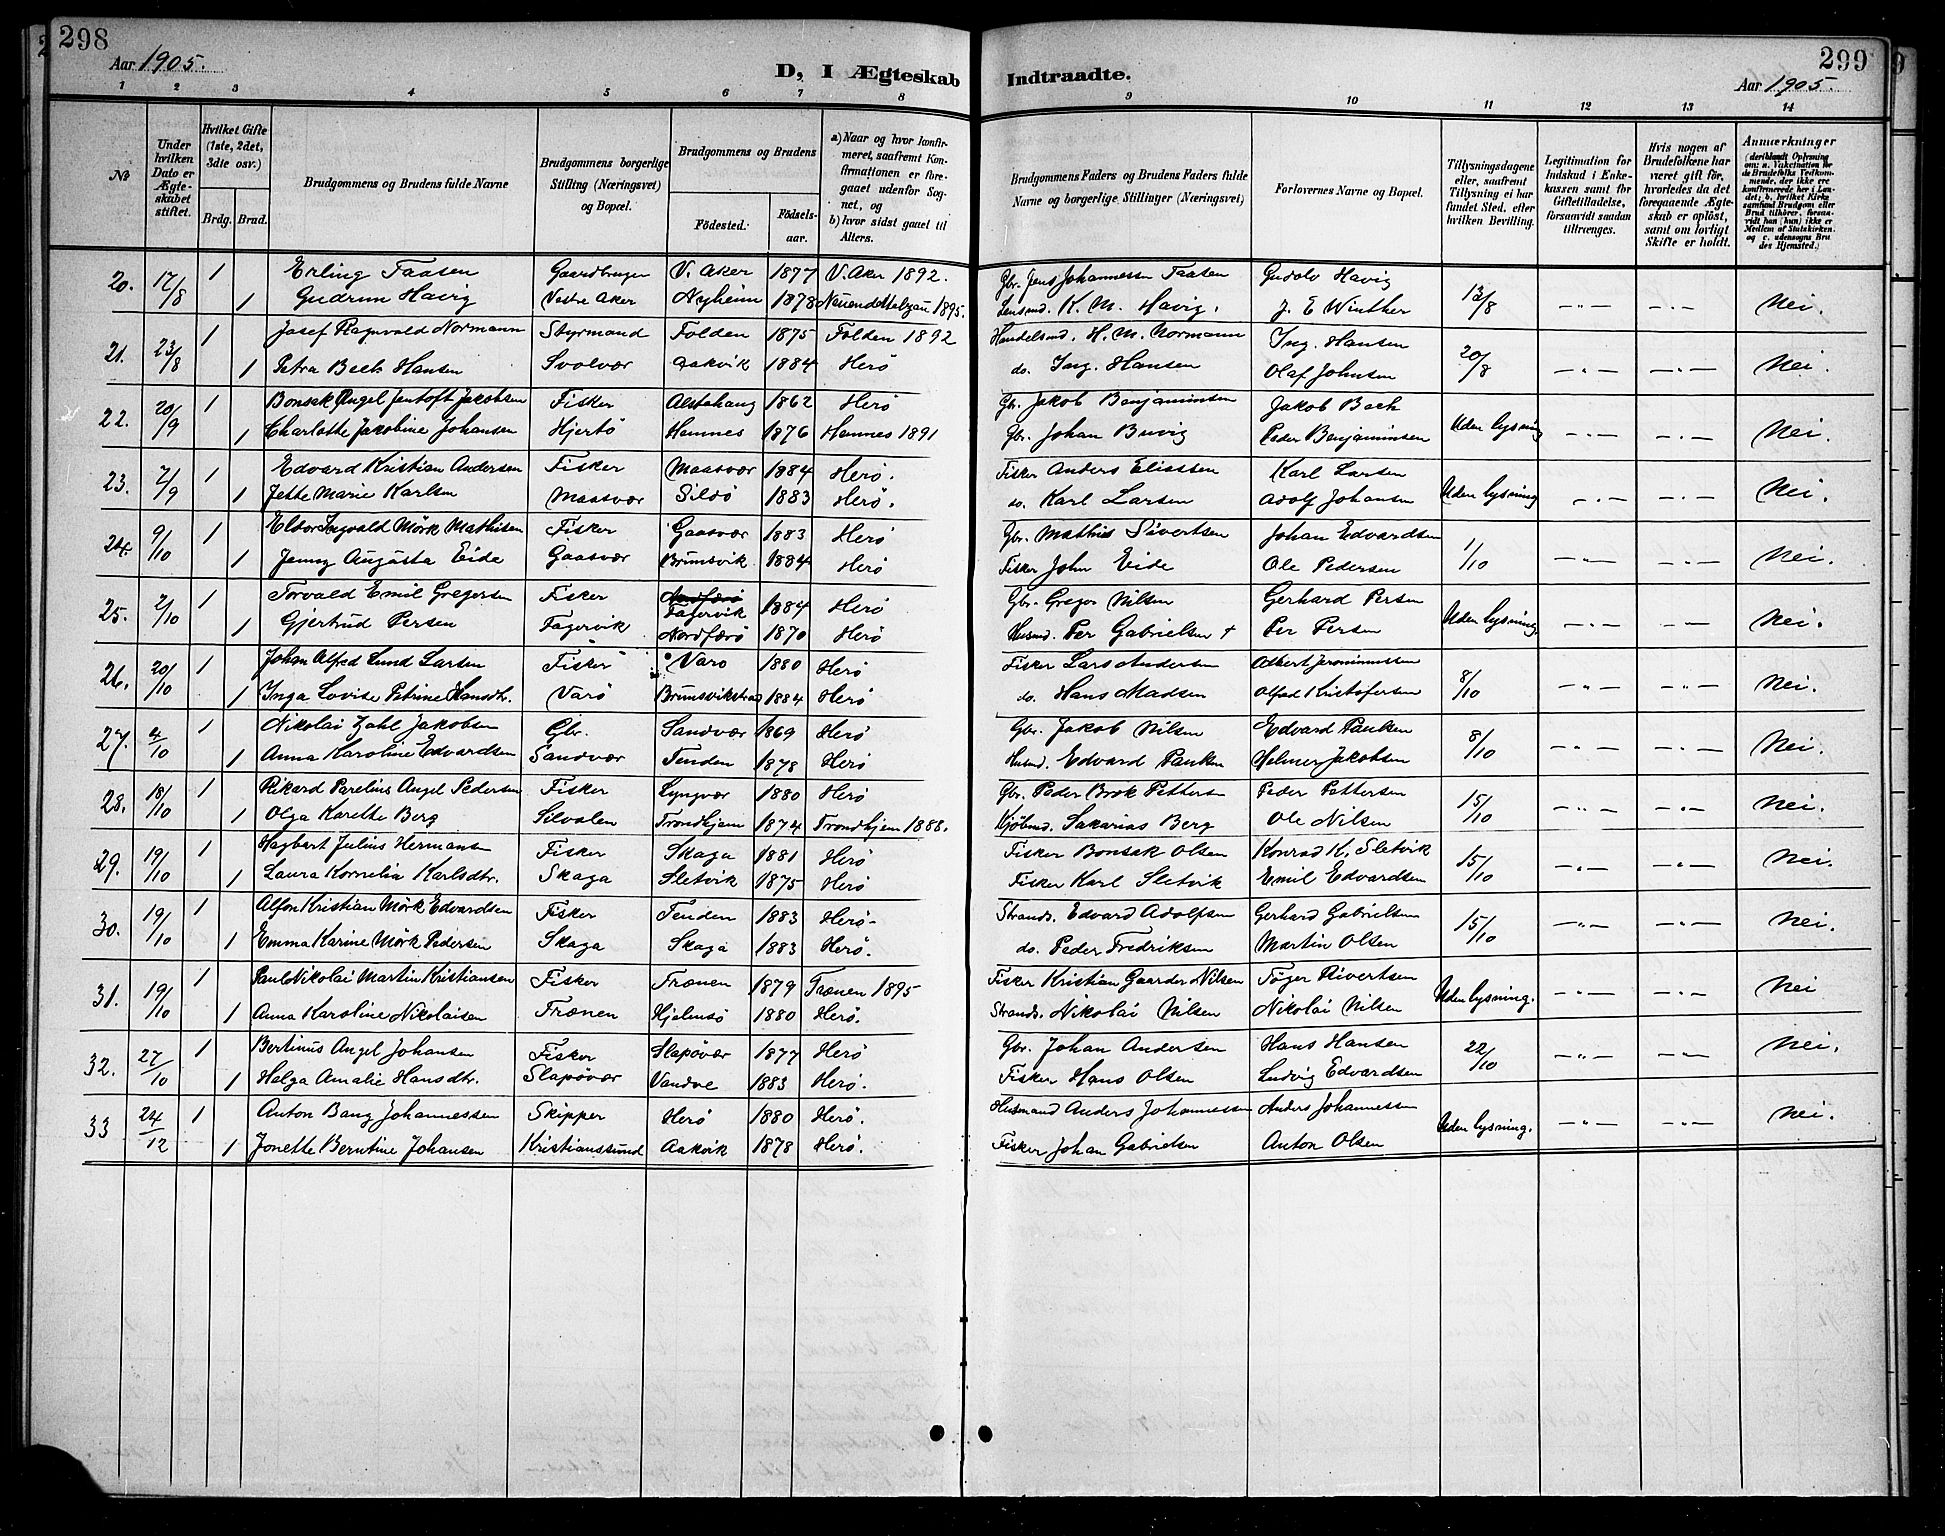 298
Aar 1905.
D, I Ægteskab
Indtraadte.
299
Aar 1905.
1 2 3 4 5 6 7 8 9 10 11 12 13 14
No
Under hvilken Dato er Ægteskabet stiftet.
Hvilket Gifte (1ste, 2det, 3dte osv.)
Brdg. Brud.
Brudgommens og Brudens fulde Navne
Brudgommens borgerlige Stilling (Næringsvet) og Bopæl.
Brudgommens og Brudens
Fødested. Fødselsaar.
a) Naar og hvor konfirmeret, saafremt Konfirmationen er foregaaet udenfor Sognet, og
b) hvor sidst gaaet til Alters.
Brudgommens Faders og Brudens Faders fulde Navne og borgerlige Stillinger (Næringsvet)
Forlovernes Navne og Bopæl.
Tillysningsdagene eller, saafremt Tillysning ei har fundet Sted, efter hvilken Bevilling.
Legitimation for Indskud i Enkekassen samt for Giftetilladelse, forsaavidt saadan tiltrænges.
Hvis nogen af Brudefolkene har været gift før, hvorledes da det foregaaende Ægteskab er opløst, samt om lovligt Skifte er holdt.
Anmærkninger
(deriblandt Oplysning om: a. Vakcination for de Brudefolks Vedkommende, der ikke ere konfirmerede her i Landet; b. hvilket Kirkesamfund Brudgom eller Brud tilhører, forsaavidt han (hun) ikke er Medlem af Statskirken, og c. udensogns Brudes Hjemsted.)
20. 17/8 1 Erling Taasen Gaardbruger V. Aker 1877 V. Aker 1892. Gbr. Jens Johannessen Taasen Gudolv Havig 13/8 -"- -"- Nei.
1 Gudrun Havig Vestre Aker Nyheim 1878 1895. Lensmd. K. M. Havig. J. E Winther
21. 23/8 1 Josef Ragnvald Normann Styrmand Folden 1875 Folden 1892 Handelsmd. H. M. Normann Ing. Hansen 20/8 -"- -"- Nei.
1 Petra Bech Hansen Svolvær Aakvik 1884 Herø do. Ing. Hansen Olaf Johnsen
22. 20/9 1 Bonsak Angel Jentoft Jakobsen Fisker Alstahaug 1862 Herø Gbr. Jakob Benjaminsen Jakob Bech Uden lysning -"- -"- Nei.
1 Charlotte Jakobine Johansen Hjertø Hemnes 1876 Hemnes 1891 Gbr. Johan Buvig Peder Benjaminsen
23. 2/9 1 Edvard Kristian Andersen Fisker Maasvær 1884 Herø. Fisker Anders Eliassen Karl Larsen Uden lysning -"- -"- Nei.
1 Jette Marie Karlsen Maasvær Sildø 1883 Herø. do. Karl Larsen Adolf Johansen
24. 9/10 1 Eldor Ingvald Mørk Mathisen Fisker Gaasvær 1883 Herø Gbr. Mathus Sivertsen Johan Edvardsen 1/10 -"- -"- Nei.
1 Jenny Augusta Eide Gaasvær Brunsvik 1884 Herø Fisker John Eide Ole Pedersen
25. 2/10 1 Torvald Emil Gregersen Fisker Fagervik 1884 Herø Gbr. Gregor Nilsen Gerhard Persen Uden lysning. -"- -"- Nei.
1 Gjertrud Persen Fagervik Nordfærø 1870 Herø Husmd. Per Gabrielsen + Per Persen
26. 20/10 1 Johan Alfred Lund Larsen Fisker Varø 1880 Herø Fisker Lars Andersen Albert Jeronimussen 8/10 -"- -"- Nei.
1 Inga Lovise Petrine Hansdtr. Varø Brunsvikstrad 1884 Herø do. Hans Madsen Olfad Kristofersen
27. 4/10 1 Nikolai Zahl Jakobsen Gbr. Sandvær 1869 Herø Gbr. Jakob Nilsen Edvard Paulsen 8/10 -"- -"- Nei.
1 Anna Karoline Edvardsen Sandvær Tenden 1878 Herø Husmd. Edvard Paulsen Helmer Jakobsen
28. 18/10 1 Rikard Parelius Angel Pedersen Fisker Lyngvær 1880 Herø Gbr. Peder Brok Pettersen Peder Pettersen 15/10 -"- -"- Nei.
1 Olga Karette Berg Silvalen Trondhjem 1874 Trondhjem 1888. Kjøbmd. Sakarias Berg Ole Nilsen
29. 19/10 1 Hagbart Julius Hermansen Fisker Skaga 1881 Herø Fisker Bonsak Olsen Konrad K. Sletvik 15/10 -"- -"- Nei.
1 Laura Kornelia Karlsdtr. Skaga Sletvik 1875 Herø Fisker Karl Sletvik Emil Edvardsen
30. 19/10 1 Alfon Kristian Mørk Edvardsen Fisker Tenden 1883 Herø. Strands. Edvard Adolfsen Gerhard Gabrielsen 15/10 -"- -"- Nei.
1 Emma Karine Mørk Pedersen Skaga Skaga 1883 Herø. do. Peder Fredriksen Martin Olsen
31. 19/10 1 Paul Nikolai Martin Kristiansen Fisker Trænen 1879 Trænen 1895 Fisker Kristian Gaarder Nilsen Tøger Sivertsen Uden lysning. -"- -"- Nei
1 Anna Karoline Nikolaisen Trænen Hjelmsø 1880 Herø. Strands. Nikolai Nilsen Nikolai Nilsen
32. 27/10 1 Bertinus Angel Johansen Fisker Slapøvær 1877 Herø Gbr. Johan Andersen Hans Hansen 22/10 -"- -"- Nei.
1 Helga Amalie Hansdtr. Slapøvær Vandve 1883 Herø. Fisker Hans Olsen Ludvig Edvardsen
33 24/12 1 Anton Bang Johannessen Skipper Herø 1880 Herø. Husmand Anders Johannessen Anders Johannessen Uden lysning. -"- -"- Nei.
1 Jonette Berntine Johansen Kristianssund Aakvik 1878 Herø. Fisker Johan Gabrielsen Anton Olsen